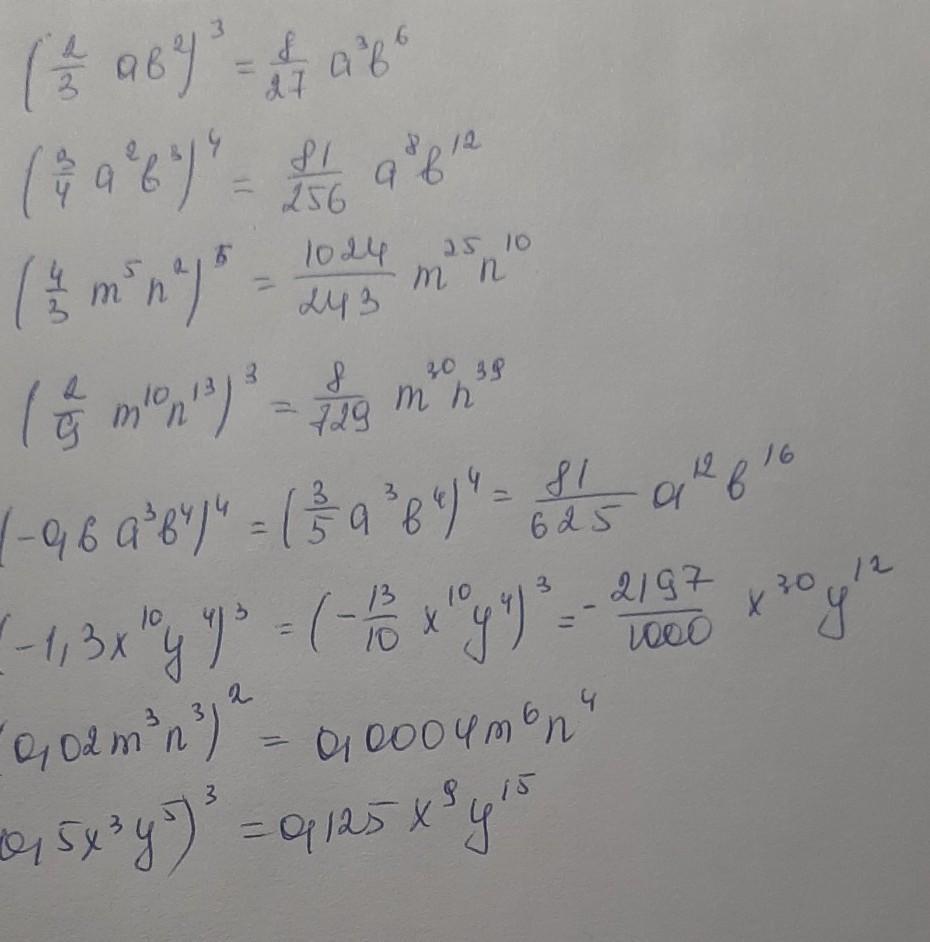 (2/3 ab²)³ = 8/27 a³b⁶
(3/4 a²b³)⁴ = 81/256 a⁸b¹²
(4/3 m⁵n²)⁵ = 1024/243 m²⁵n¹⁰
(2/9 m¹⁰n¹³)³ = 8/729 m³⁰n³⁹
(-0,6 a³b⁴)⁴ = (3/5 a³b⁴)⁴ = 81/625 a¹²b¹⁶
(-1,3x¹⁰y⁴)³ = (-13/10 x¹⁰y⁴)³ = -2197/1000 x³⁰y¹²
(0,02m³n³)² = 0,0004m⁶n⁴
0,5x³y⁵)³ = 0,125x⁹y¹⁵